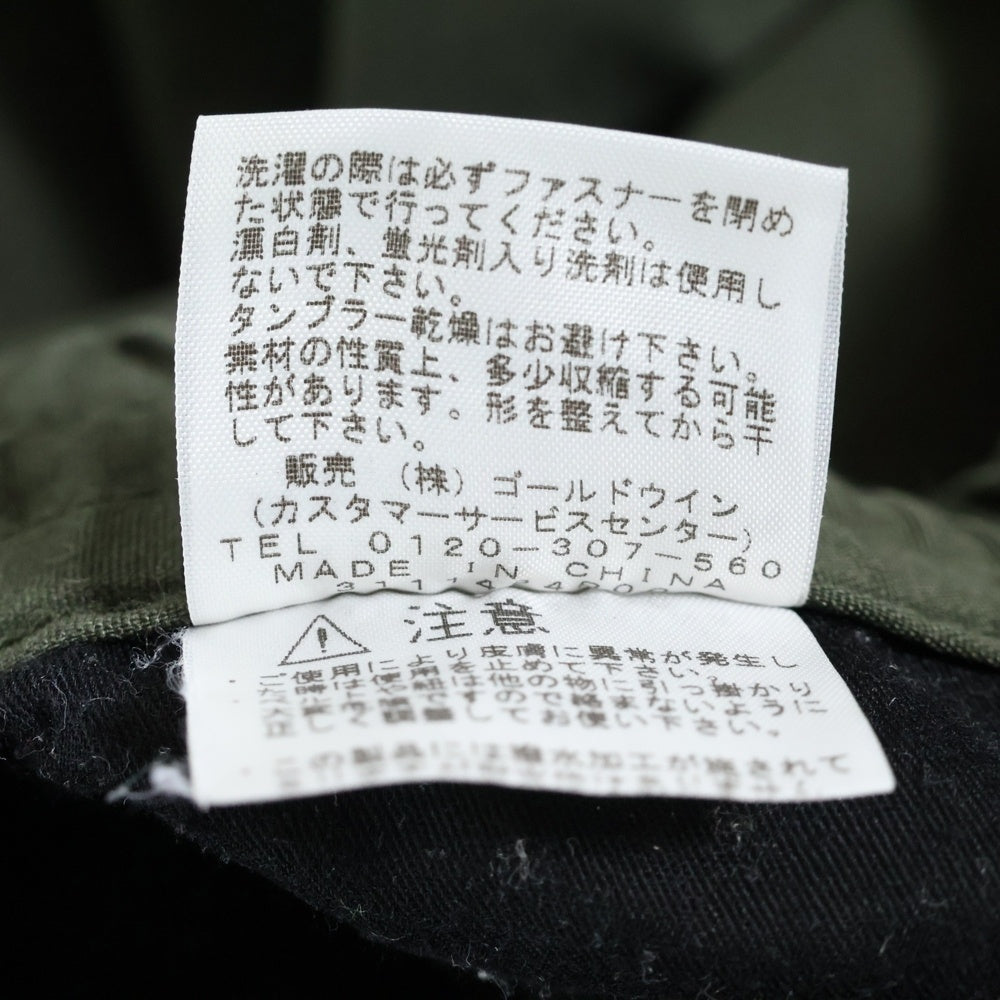 洗濯の際は必ずファスナーを閉め
た状態で行ってください。
漂白剤、蛍光剤入り洗剤は使用し
ないで下さい。
タンブラー乾燥はお避け下さい。
素材の性質上、多少収縮する可能
性があります。形を整えてから干
して下さい。
販売 (株) ゴールドウイン
(カスタマーサービスセンター)
TEL 0120-307-560
MADE IN CHINA
注意
ご使用により皮膚に異常が発生し
た時は使用を止めて下さい。
してお使い下さい。
この製品には撥水加工が施されて